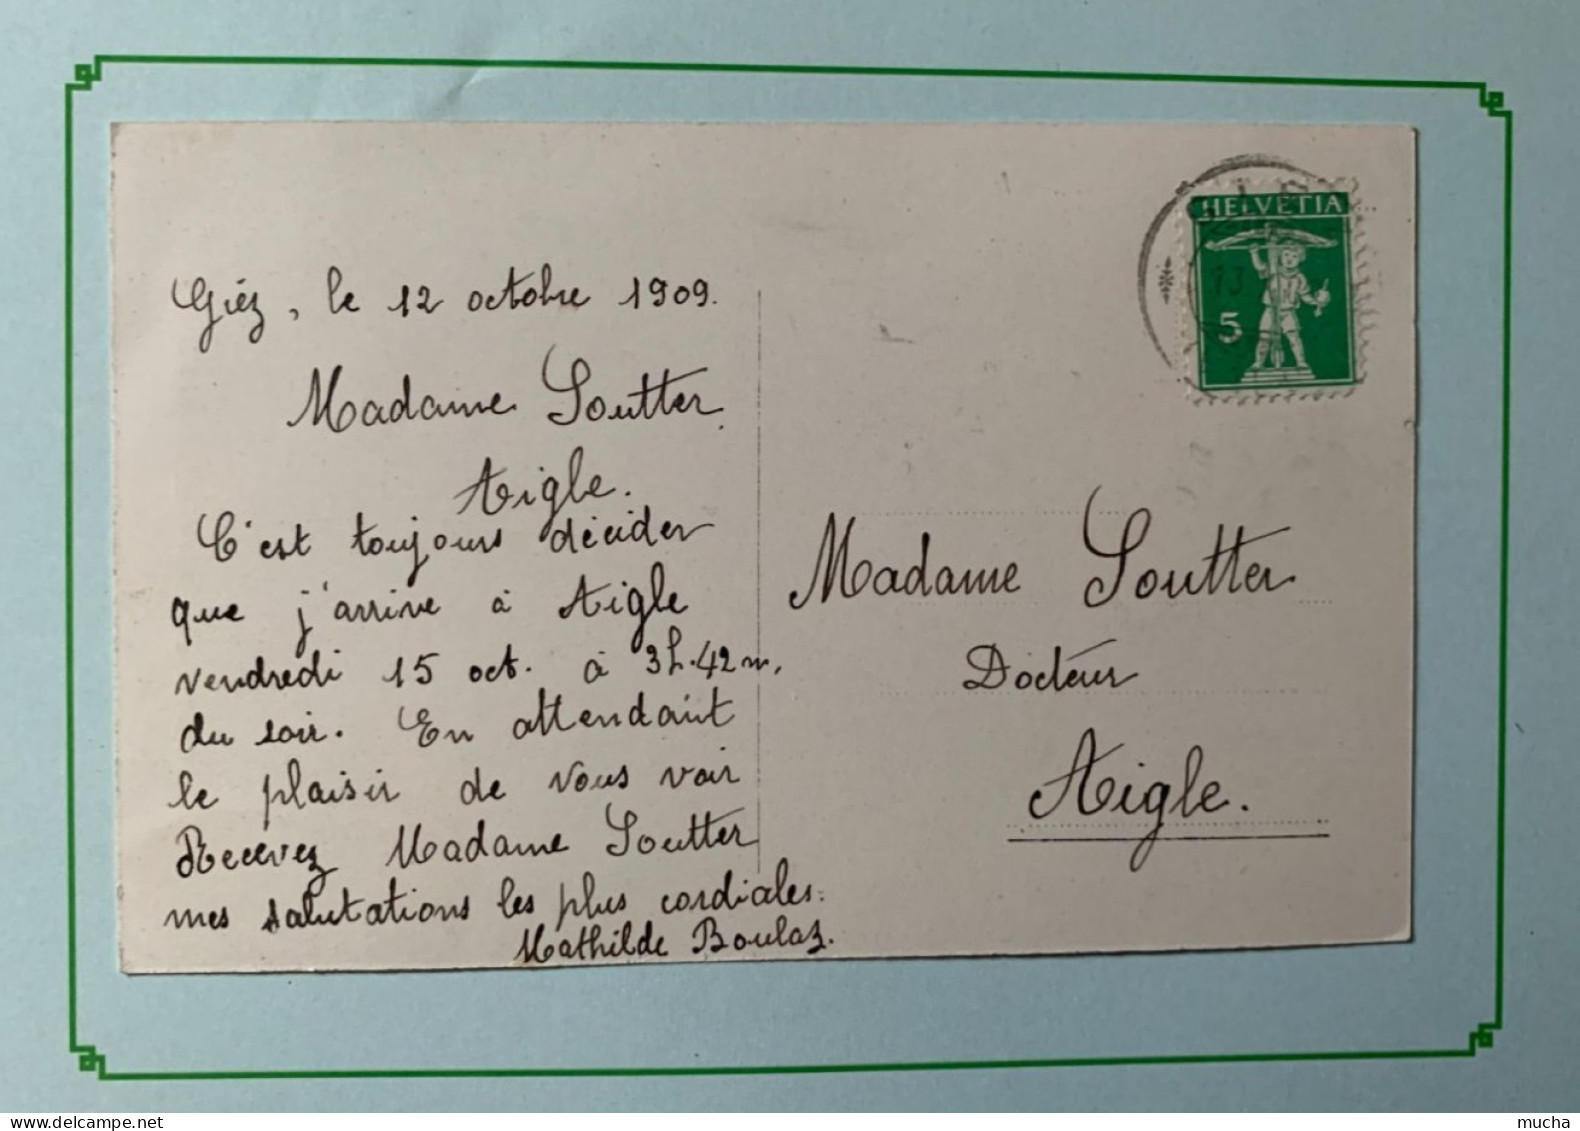 Giéz, le 12 octobre 1909.
Madame Soutter
Aigle.
C'est toujours décider
que j'arrive à Aigle
vendredi 15 oct. à 3h.42m,
du soir. En attendant
le plaisir de vous voir
Recevez Madame Soutter
mes salutations les plus cordiales.
Mathilde Boulaz.
HELVETIA
13
5
Madame Soutter
Docteur
Aigle.
delcampe.net
mucha